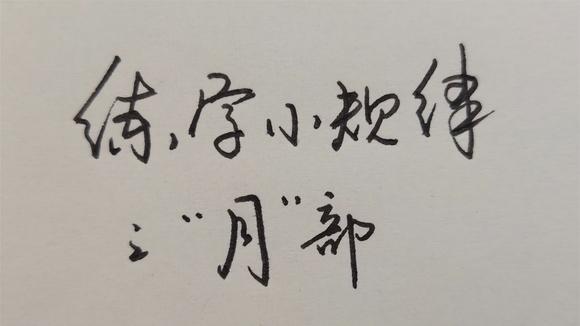 练字小规律
之“月”部